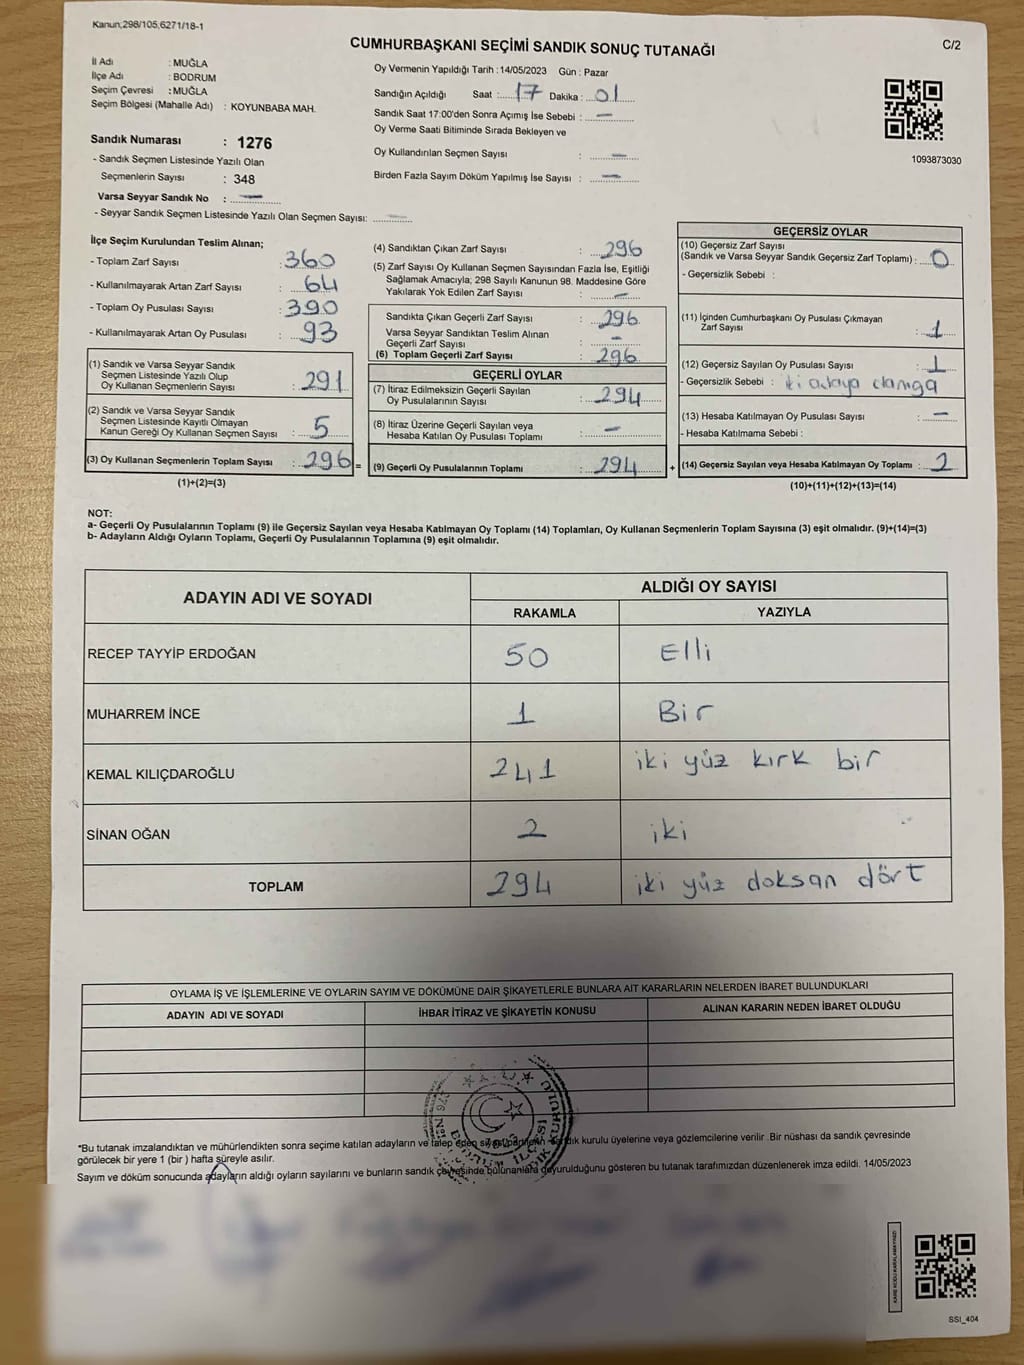 Kanun;298/105,6271/18-1
C/2
CUMHURBAŞKANI SEÇİMİ SANDIK SONUÇ TUTANAĞI
İl Adı : MUĞLA
İlçe Adı : BODRUM
Seçim Çevresi : MUĞLA
Seçim Bölgesi (Mahalle Adı) : KOYUNBABA MAH.
Sandık Numarası : 1276
- Sandık Seçmen Listesinde Yazılı Olan
Seçmenlerin Sayısı : 348
Varsa Seyyar Sandık No : —
- Seyyar Sandık Seçmen Listesinde Yazılı Olan Seçmen Sayısı: —
Oy Vermenin Yapıldığı Tarih : 14/05/2023 Gün : Pazar
Sandığın Açıldığı Saat : 17 Dakika : 01
Sandık Saat 17:00'den Sonra Açımış İse Sebebi : —
Oy Verme Saati Bitiminde Sırada Bekleyen ve
Oy Kullandırılan Seçmen Sayısı : —
Birden Fazla Sayım Döküm Yapılmış İse Sayısı : —
1093873030
İlçe Seçim Kurulundan Teslim Alınan;
- Toplam Zarf Sayısı : 360
- Kullanılmayarak Artan Zarf Sayısı : 64
- Toplam Oy Pusulası Sayısı : 390
- Kullanılmayarak Artan Oy Pusulası : 93
(1) Sandık ve Varsa Seyyar Sandık
Seçmen Listesinde Yazılı Olup
Oy Kullanan Seçmenlerin Sayısı : 291
(2) Sandık ve Varsa Seyyar Sandık
Seçmen Listesinde Kayıtlı Olmayan
Kanun Gereği Oy Kullanan Seçmen Sayısı : 5
(3) Oy Kullanan Seçmenlerin Toplam Sayısı : 296 =
(1)+(2)=(3)
(4) Sandıktan Çıkan Zarf Sayısı : 296
(5) Zarf Sayısı Oy Kullanan Seçmen Sayısından Fazla İse, Eşitliği
Sağlamak Amacıyla; 298 Sayılı Kanunun 98. Maddesine Göre
Yakılarak Yok Edilen Zarf Sayısı : —
Sandıkta Çıkan Geçerli Zarf Sayısı : 296
Varsa Seyyar Sandıktan Teslim Alınan
Geçerli Zarf Sayısı : —
(6) Toplam Geçerli Zarf Sayısı : 296
GEÇERLİ OYLAR
(7) İtiraz Edilmeksizin Geçerli Sayılan
Oy Pusulalarının Sayısı : 294
(8) İtiraz Üzerine Geçerli Sayılan veya
Hesaba Katılan Oy Pusulası Toplamı : —
(9) Geçerli Oy Pusulalarının Toplamı : 294 +
GEÇERSİZ OYLAR
(10) Geçersiz Zarf Sayısı
(Sandık ve Varsa Seyyar Sandık Geçersiz Zarf Toplamı) : 0
- Geçersizlik Sebebi :
(11) İçinden Cumhurbaşkanı Oy Pusulası Çıkmayan
Zarf Sayısı : 1
(12) Geçersiz Sayılan Oy Pusulası Sayısı : 1
- Geçersizlik Sebebi : iki adaya damga
(13) Hesaba Katılmayan Oy Pusulası Sayısı : —
- Hesaba Katılmama Sebebi :
(14) Geçersiz Sayılan veya Hesaba Katılmayan Oy Toplamı : 2
(10)+(11)+(12)+(13)=(14)
NOT:
a- Geçerli Oy Pusulalarının Toplamı (9) ile Geçersiz Sayılan veya Hesaba Katılmayan Oy Toplamı (14) Toplamları, Oy Kullanan Seçmenlerin Toplam Sayısına (3) eşit olmalıdır. (9)+(14)=(3)
b- Adayların Aldığı Oyların Toplamı, Geçerli Oy Pusulalarının Toplamına (9) eşit olmalıdır.
ADAYIN ADI VE SOYADI
ALDIĞI OY SAYISI
RAKAMLA YAZIYLA
RECEP TAYYİP ERDOĞAN 50 Elli
MUHARREM İNCE 1 Bir
KEMAL KILIÇDAROĞLU 241 iki yüz kırk bir
SİNAN OĞAN 2 iki
TOPLAM 294 iki yüz doksan dört
OYLAMA İŞ VE İŞLEMLERİNE VE OYLARIN SAYIM VE DÖKÜMÜNE DAİR ŞİKAYETLERLE BUNLARA AİT KARARLARIN NELERDEN İBARET BULUNDUKLARI
ADAYIN ADI VE SOYADI İHBAR İTİRAZ VE ŞİKAYETİN KONUSU ALINAN KARARIN NEDEN İBARET OLDUĞU
*Bu tutanak imzalandıktan ve mühürlendikten sonra seçime katılan adayların ve talep eden siyasi partilerin sandık kurulu üyelerine veya gözlemcilerine verilir. Bir nüshası da sandık çevresinde
görülecek bir yere 1 (bir ) hafta süreyle asılır.
Sayım ve döküm sonucunda adayların aldığı oyların sayılarını ve bunların sandık çevresinde bulunanlara duyurulduğunu gösteren bu tutanak tarafımızdan düzenlenerek imza edildi. 14/05/2023
KARE KODU KARALAMAYINIZ!
SSI_404